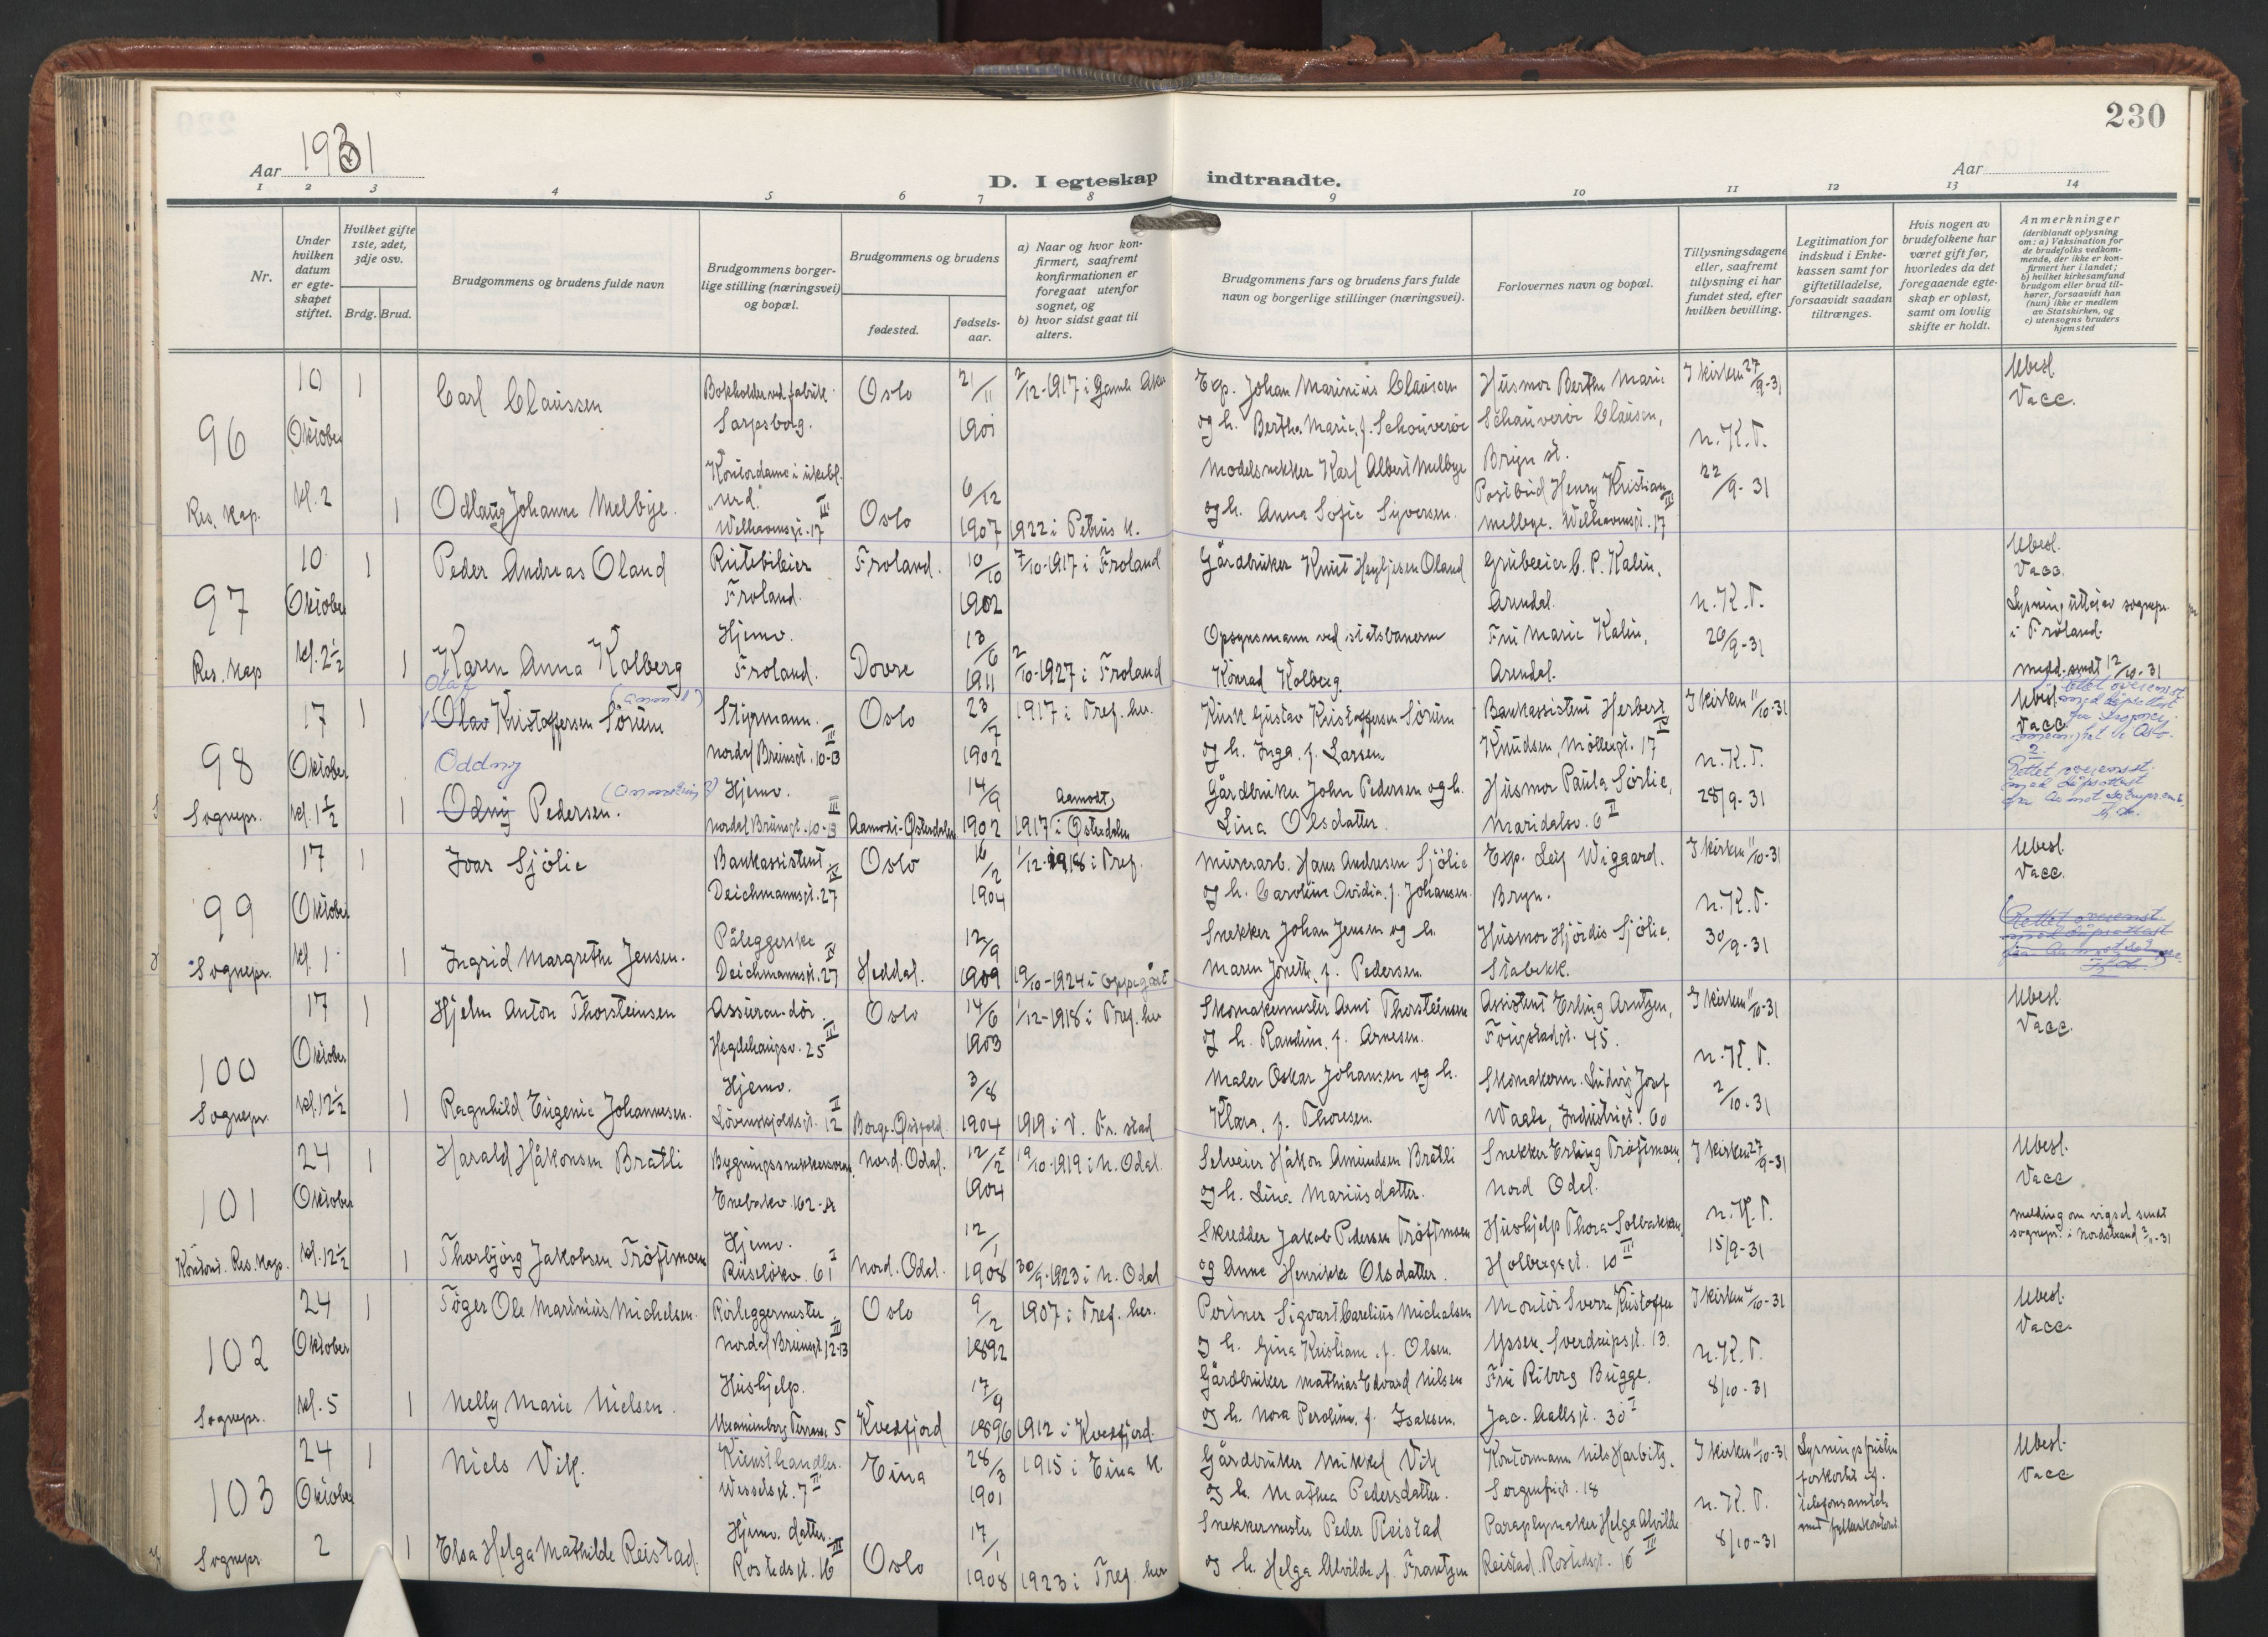 230
Aar 1931
D. I egteskap indtraadte.
Aar
1 2 3 4 5 6 7 8 9 10 11 12 13 14
Nr.
Under hvilken datum er egteskapet stiftet.
Hvilket gifte 1ste, 2det, 3dje osv.
Brdg. Brud.
Brudgommens og brudens fulde navn
Brudgommens borgerlige stilling (næringsvei) og bopæl.
Brudgommens og brudens
fødested.
fødselsaar.
a) Naar og hvor konfirmert, saafremt konfirmationen er foregaat utenfor sognet, og
b) hvor sidst gaat til alters.
Brudgommens fars og brudens fars fulde navn og borgerlige stillinger (næringsvei).
Forlovernes navn og bopæl.
Tillysningsdagene eller, saafremt tillysning ei har fundet sted, efter hvilken bevilling.
Legitimation for indskud i Enkekassen samt for giftetilladelse, forsaavidt saadan tiltrænges.
Hvis nogen av brudefolkene har været gift før, hvorledes da det foregaaende egteskap er opløst, samt om lovlig skifte er holdt.
Anmerkninger
(deriblandt oplysning om: a) Vaksination for de brudefolks vedkommende, der ikke er konfirmert her i landet; b) hvilket kirkesamfund brudgom eller brud tilhører, forsaavidt han (hun) ikke er medlem av Statskirken, og c) utensogns bruders hjemsted
96
10 Oktober kl. 2
Res. kap.
1
Carl Claussen
Bokholder ved fabrikk
Sarpsborg.
Oslo
21/11 1901
2/12-1917 i Gamle Aker
Exp. Johan Marinius Claussen
og h. Bertha Marie, f. Schouverøe
Husmor Berthe Marie
Schauverøe Clausen,
Bryn st.
I kirken 27/9-31
n.K.T.
22/9-31
Ubesl.
Vacc.
1
Odlaug Johanne Melbye.
Kontordame i ukebl.
"Urd"
Welhavensgt. 17 III
Oslo
6/12 1907
1922 i Petrus k.
Modelsnekker Karl Albert Melbye
og h. Anna Sofie Syversen.
Postbud Henry Kristian
Melbye. Welhavensgt. 17 III
97
10 Oktober kl. 2 1/2
Res. kap
1
Peder Andreas Oland
Rutebileier
Froland.
Froland.
10/10 1902
7/10-1917 i Froland
Gårdbruker Knut Oland
Grubeeier C. P. Kalin,
Arendal.
n.K.T.
20/9-31
Ubesl.
Vacc.
Lysning av sognepr.
i Froland.
Medd. sendt 12/10-31
1
Karen Anna Kolberg
Hjemv.
Froland.
Dovre
13/6 1911
2/10-1927 i Froland
Opsynsmann ved statsbanerne
Konrad Kolberg.
Fru Marie Kalin,
Arendal.
98
17 Oktober kl. 1 1/2
Sognepr.
1
Olaf
Olav Kristoffersen Sörum
Styrmann.
Nordal Brunsgt. 10-13 III
Oslo
23/7 1902
1917 i Tref. her.
Kusk Gustav Kristoffersen Sörum
og h. Inga f. Larsen
Bankassistent Herbert
Knudsen, Möllergt. 17 IV
I kirken 11/10-31
n.K.T.
28/9-31
Ubesl.
Vacc.
Rettet overenst.
med dåpsattest
1
Oddny
Odny Pedersen.
Hjemv.
Nordal Brunsgt. 10-13 III
Aamodt-Østerdalen
14/9 1902
Aamodt
1917 i Østerdalen
Gårdbruker John Pedersen og h.
Lina Olsdatter.
Husmor Paula Sörlie,
Maridalsv. 6 II
99
17 Oktober kl. 1
Sognepr.
1
Ivar Sjölie
Bankassistent
Deichmannsgt. 27 IV
Oslo
16/2 1904
1/12-1918 i Tref.
Murerarb. Hans Andresen Sjölie
og h. Caroline Ovidia, f. Johansen.
Exp. Leif Wiggard.
Bryn.
I kirken 11/10-31
n.K.T.
30/9-31
Ubesl.
Vacc.
1
Ingrid Margrethe Jensen.
Påleggerske
Deichmannsgt. 27 IV
Heddal.
12/9 1909
19/10-1924 i Oppegård
Snekker Johan Jensen og h.
Maren Jonette, f. Pedersen.
Husmor Hjördis Sjölie,
Stabekk.
100
17 Oktober kl. 12 1/2
Sognepr.
1
Hjelm Anton Thorsteinsen
Assurandör
Hegdehaugsv. 25 III
Oslo
14/6 1903
1/12-1918 i Tref. her
Skomakermester Arni Thorsteinsen
og h. Randine, f. Arnesen.
Assistent Erling Arntzen,
Fougstadgt. 45.
I kirken 11/10-31
n.K.T.
2/10-31
Ubesl.
Vacc.
1
Ragnhild Eugenie Johannesen.
Hjemv.
Lövenskjoldsgt. 12 II
Borge. Østfold.
3/8 1904
1919 i V. Fr. stad
Maler Oskar Johansen og h.
Klara, f. Thoresen.
Skomakerm. Ludvig Josef
Waale, Industrigt. 60
101
24 Oktober kl. 12 1/2
Konst. Res. kap.
1
Harald Håkonsen Bråtli
Bygningssnekkersvenn
Enebakv. 162-A
Nord. Odal.
12/2 1904
19/10-1919 i N. Odal.
Selveier Håkon Amundsen Bråtli
og h. Lina Mariusdatter.
Snekker Erling Tröftmoen,
Nord Odal.
I kirken 27/9-31
n.K.T.
15/9-31
Ubesl.
Vacc.
Melding om vigsel sendt
sognepr. i Nordstrand 3/11-31
1
Thorbjörg Jakobsen Tröftmoen
Hjemv.
Ruselökv. 61 I
Nord. Odal.
12/1 1908
30/9-1923 i N. Odal
Skredder Jakob Pedersen Tröftmoen
og Anne Henrikke Olsdatter.
Hushjelp Thora Solbakken,
Holbergsgt. 10 III
102
24 Oktober kl. 5
Sognepr.
1
Töger Ole Marinius Michelsen.
Rörleggermester
Nordal Brunsgt 12-13 III
Oslo
9/2 1892
1907 i Tref. her.
Portner Sigvart Carelius Michalsen
og h. Gina Kristiane f. Olsen.
Montör Sverre Kristoffer
Yssen, Sverdrupsgt. 13.
I kirken 4/10-31
n.K.T.
8/10-31
Ubesl.
Vacc.
1
Nelly Marie Nielsen.
Hushjelp.
Terrasse 5
Kvedfjord
17/9 1896
1912 i Kvedfjord.
Gårdbruker Mathias Edvard Nilsen
og h. Nora Peroline, f. Isaksen.
Fru Riborg Bugge,
Jac. Aallsgt. 30 I
103
24 Oktober 2
Sognepr.
1
Niels Vik.
Kunsthandler.
Wesselsgt. 7 II
Eina
28/3 1901
1915 i Eina k.
Gårdbruker Mikkel Vik
og h. Mathea Pedersdatter.
Kontormann Nils Harbitz,
Sorgenfrigt. 18
I kirken 11/10-31
n.K.T.
8/10-31
Lysningsfristen
forkortet efter
telefonsamtale
med fylkeskontoret
Ubesl.
Vacc
1
Elsa Helga Mathilde Reistad.
Hjemv. datter.
Rostedsgt. 16 III
Oslo
17/1 1908
1923 i Tref. her
Snekkermester Peder Reistad
og h. Helga Alvilde, f. Frantzen
Paraplymaker Helga Alvilde
Reistad. Rostedsgt. 16 III